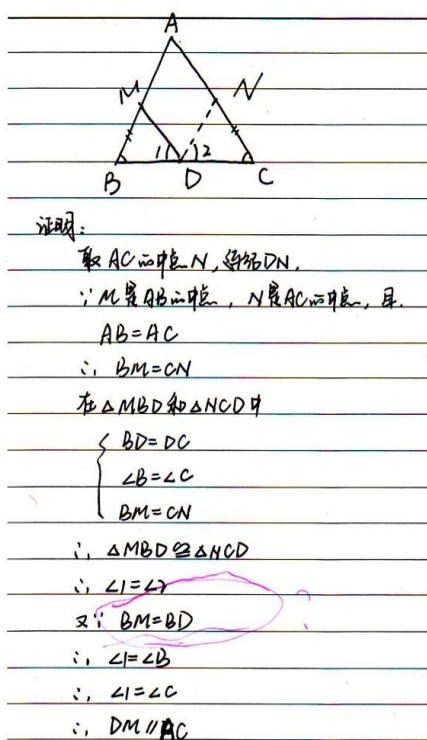 A
M
N
1
2
B
D
C
证明:
取AC的中点N,连结DN,
∵M是AB的中点,N是AC的中点,且.
AB=AC
∴ BM=CN
在△MBD和△NCD中
BD=DC
∠B=∠C
BM=CN
∴ △MBD≌△NCD
∴ ∠1=∠2
又∵ BM=BD
?
∴ ∠1=∠B
∴ ∠1=∠C
∴ DM∥AC